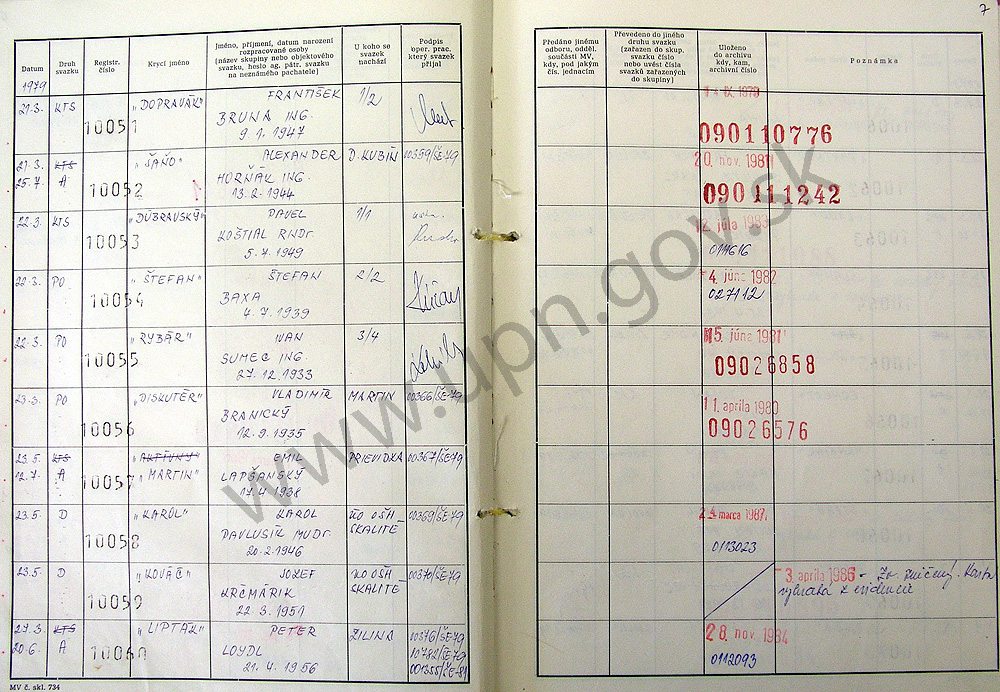 7
Datum
Druh svazku
Registr. číslo
Krycí jméno
Jméno, příjmení, datum narození
rozpracované osoby
(název skupiny nebo objektového
svazku, heslo ag. pátr. svazku
na neznámého pachatele)
U koho se svazek nachází
Podpis oper. prac. který svazek přijal
Předáno jinému odboru, odděl. součásti MV, kdy, pod jakým čís. jednacím
Převedeno do jiného druhu svazku (zařazen do skup. svazku číslo nebo uvést čísla svazků zařazených do skupiny)
Uloženo do archivu kdy, kam, archivní číslo
Poznámka
1979
21.3. KTS 10051 "DOPRAVÁK" FRANTIŠEK 1/2
BRUNA ING.
9.1.1947
090110776
21.3. KTS "ŠAŇO" ALEXANDER D. KUBÍN 00359/ŠE-79
25.7. A 10052 HORŇÁK ING.
13.2.1944
20. nov. 1981
090111242
22.3. KTS 10053 "DÚBRAVSKÝ" PAVEL 1/1
KOŠTIAL RNDr.
5.7.1949
12. júla 1983
011616
22.3. PO 10054 "ŠTEFAN" ŠTEFAN 2/2
BAXA
4.7.1939
4. júna 1982
027112
22.3. PO 10055 "RYBÁR" IVAN 3/4
SUMEC ING.
27.12.1933
15. júna 1981
09026858
23.3. PO 10056 "DISKUTÉR" VLADIMÍR MARTIN 00366/ŠE-79
BRANICKÝ
12.9.1935
11. apríla 1980
09026576
23.5. KTS "AKTÍVNY" EMIL PRIEVIDZA 00367/ŠE-79
12.7. A 10057 "MARTIN" LAPŠANSKÝ
17.4.1938
23.5. D 10058 "KAROL" KAROL NO OŠH SKALITÉ 00369/ŠE-79
PAVLUSÍK MUDr.
20.2.1946
24. marca 1987
0113023
23.5. D 10059 "KOVÁČ" JOZEF NO OŠH SKALITÉ 00370/ŠE-79
KRČMÁRIK
22.3.1951
3. apríla 1986 - Zv. zničený. Karta
vybratá z evidencie
27.3. KTS "LIPTÁK" PETER ŽILINA 00376/ŠE-79
20.6. A 10060 LOYDL 10782/ŠE-79
21.4.1956 001355/ŠE-81
28. nov. 1984
0112093
MV č. skl. 734
www.upn.gov.sk